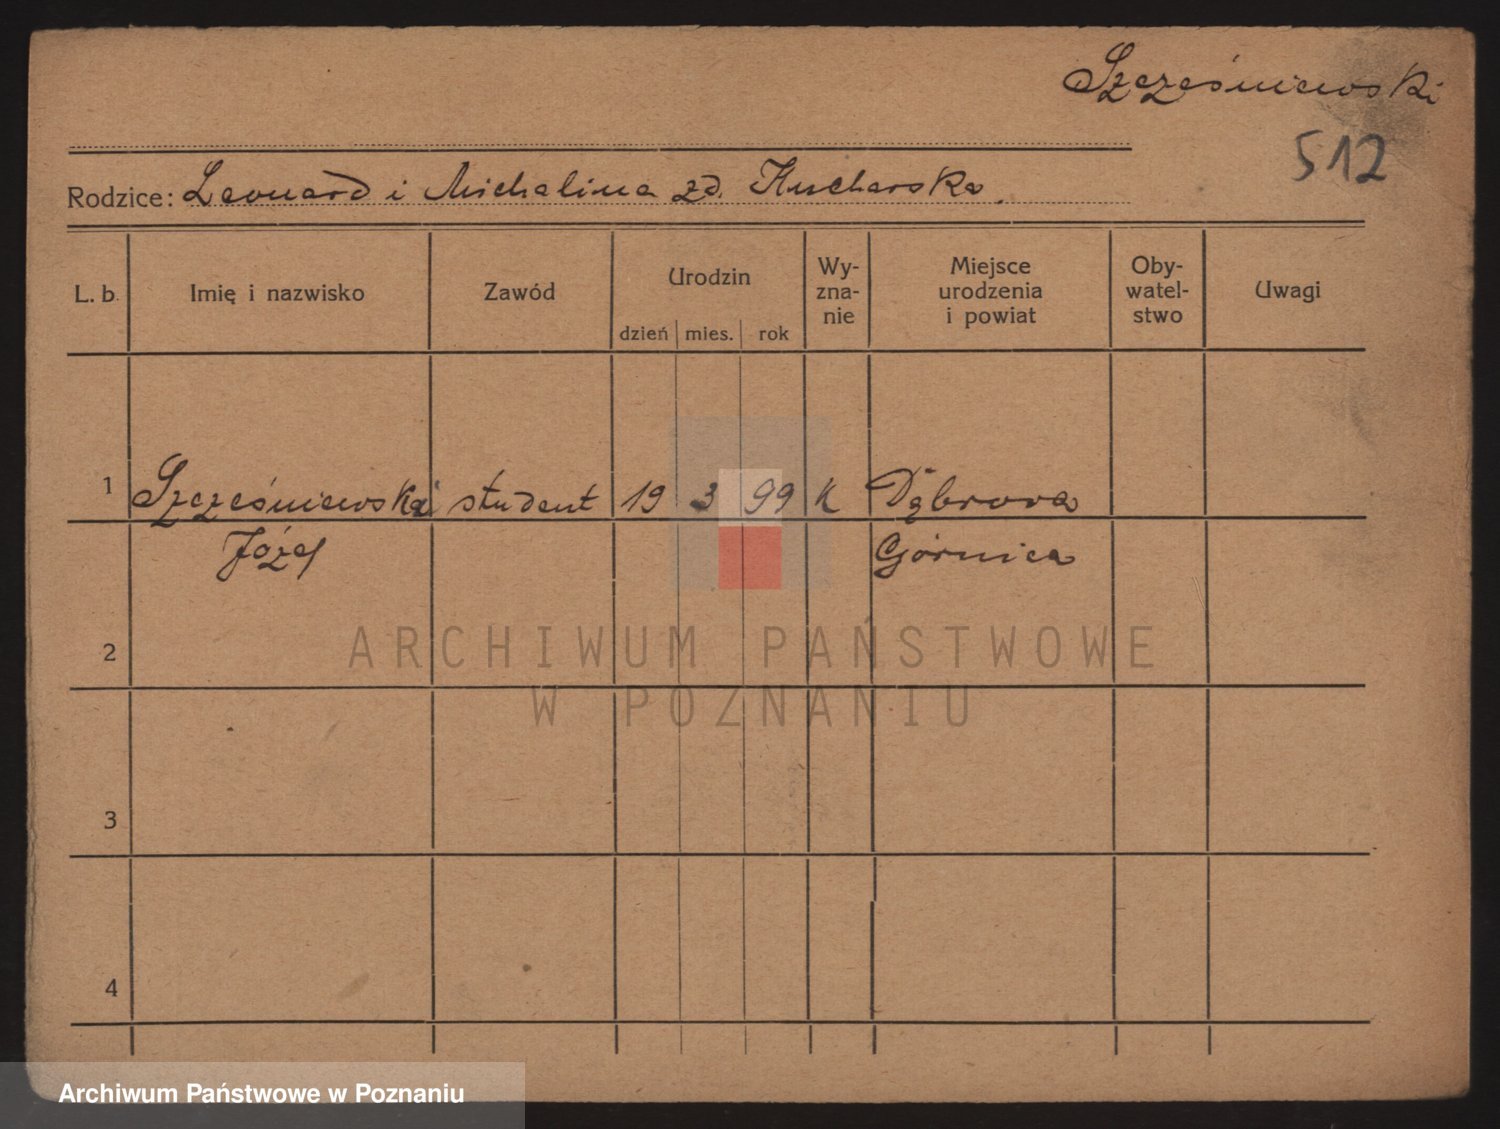 Szcześniewski
512
Rodzice: Leonard i Michalina zd. Kucharska.
L. b.
Imię i nazwisko
Zawód
Urodzin
dzień mies. rok
Wy-
zna-
nie
Miejsce
urodzenia
i powiat
Oby-
watel-
stwo
Uwagi
1 Szcześniewski student 19 3 99 k Dąbrowa
Józef Górnica
2
ARCHIWUM PAŃSTWOWE
W POZNANIU
3
4
Archiwum Państwowe w Poznaniu